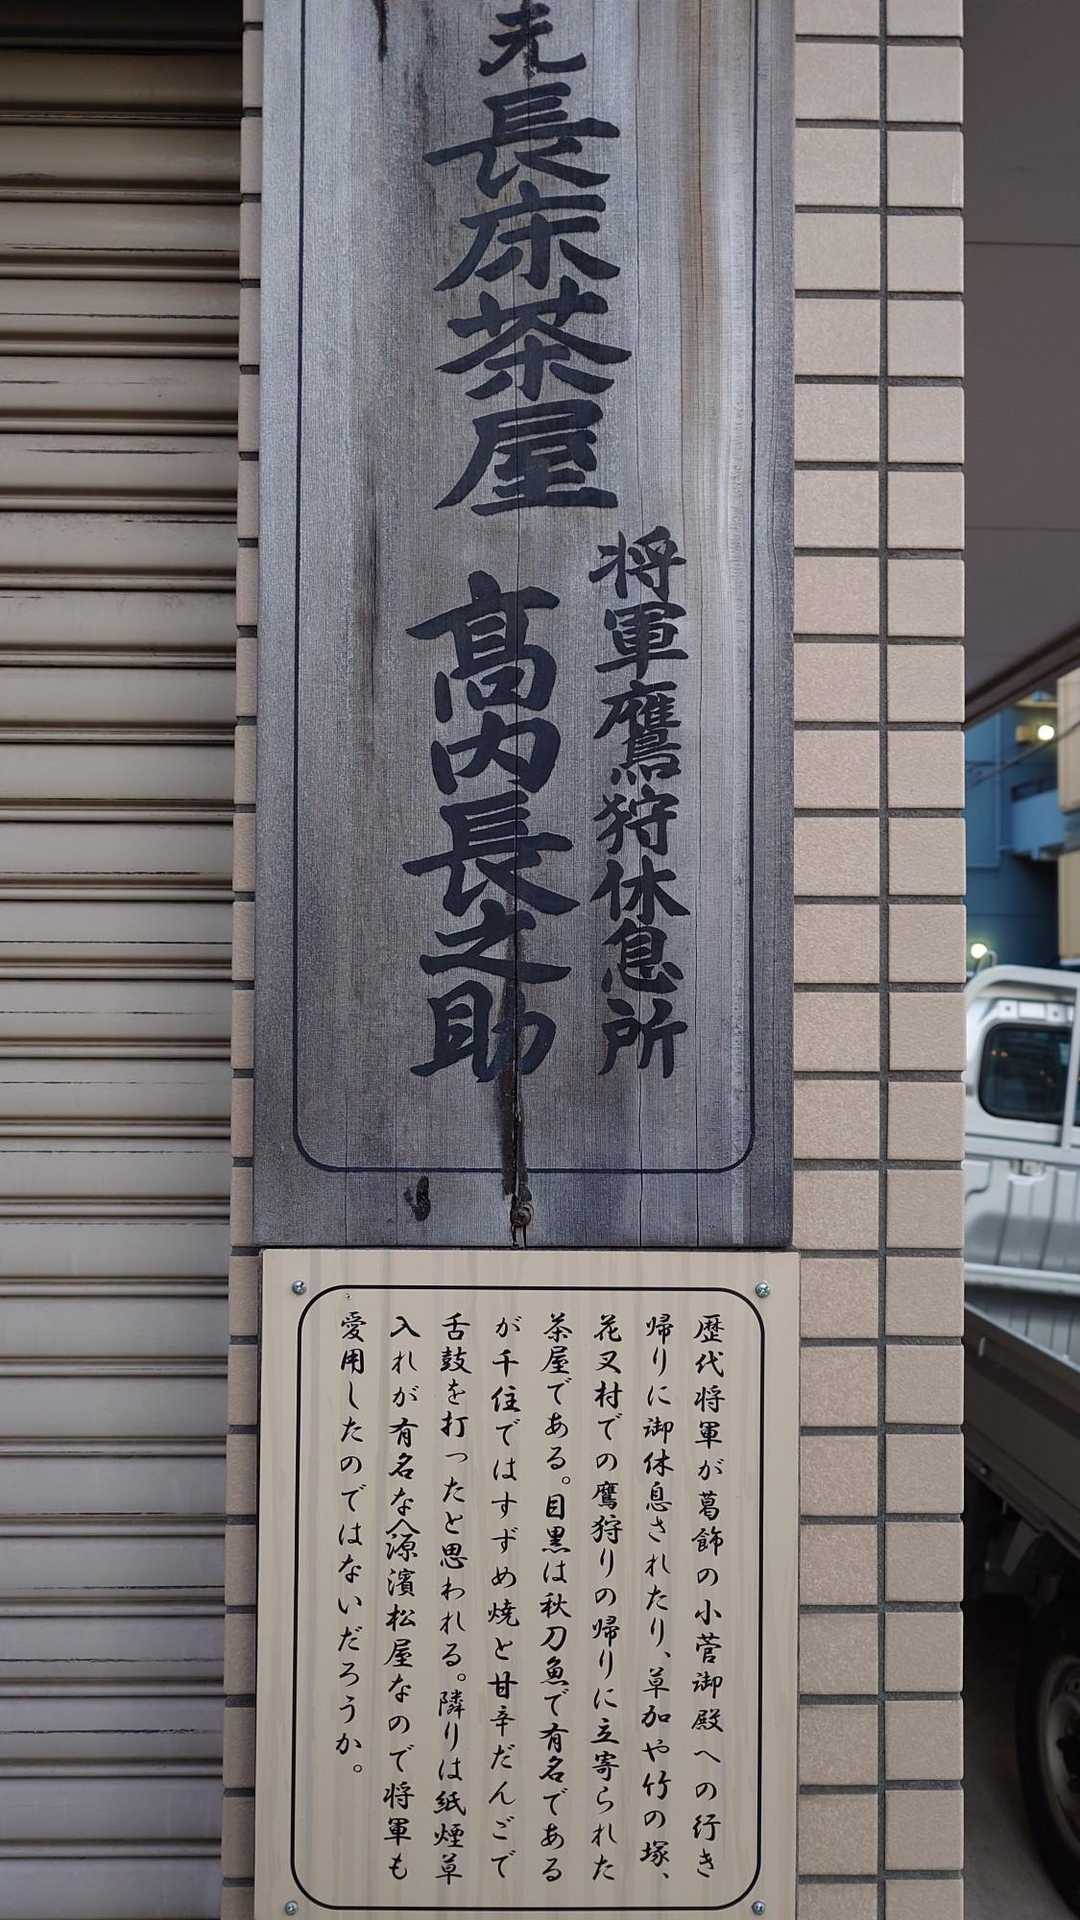 元長床茶屋
将軍鷹狩休息所
髙内長之助
歴代将軍が葛飾の小菅御殿への行き
帰りに御休息されたり、草加や竹の塚、
花又村での鷹狩りの帰りに立寄られた
茶屋である。目黒は秋刀魚で有名である
が千住ではすずめ焼と甘辛だんごで
舌鼓を打ったと思われる。隣りは紙煙草
入れが有名な𠆢源濱松屋なので将軍も
愛用したのではないだろうか。